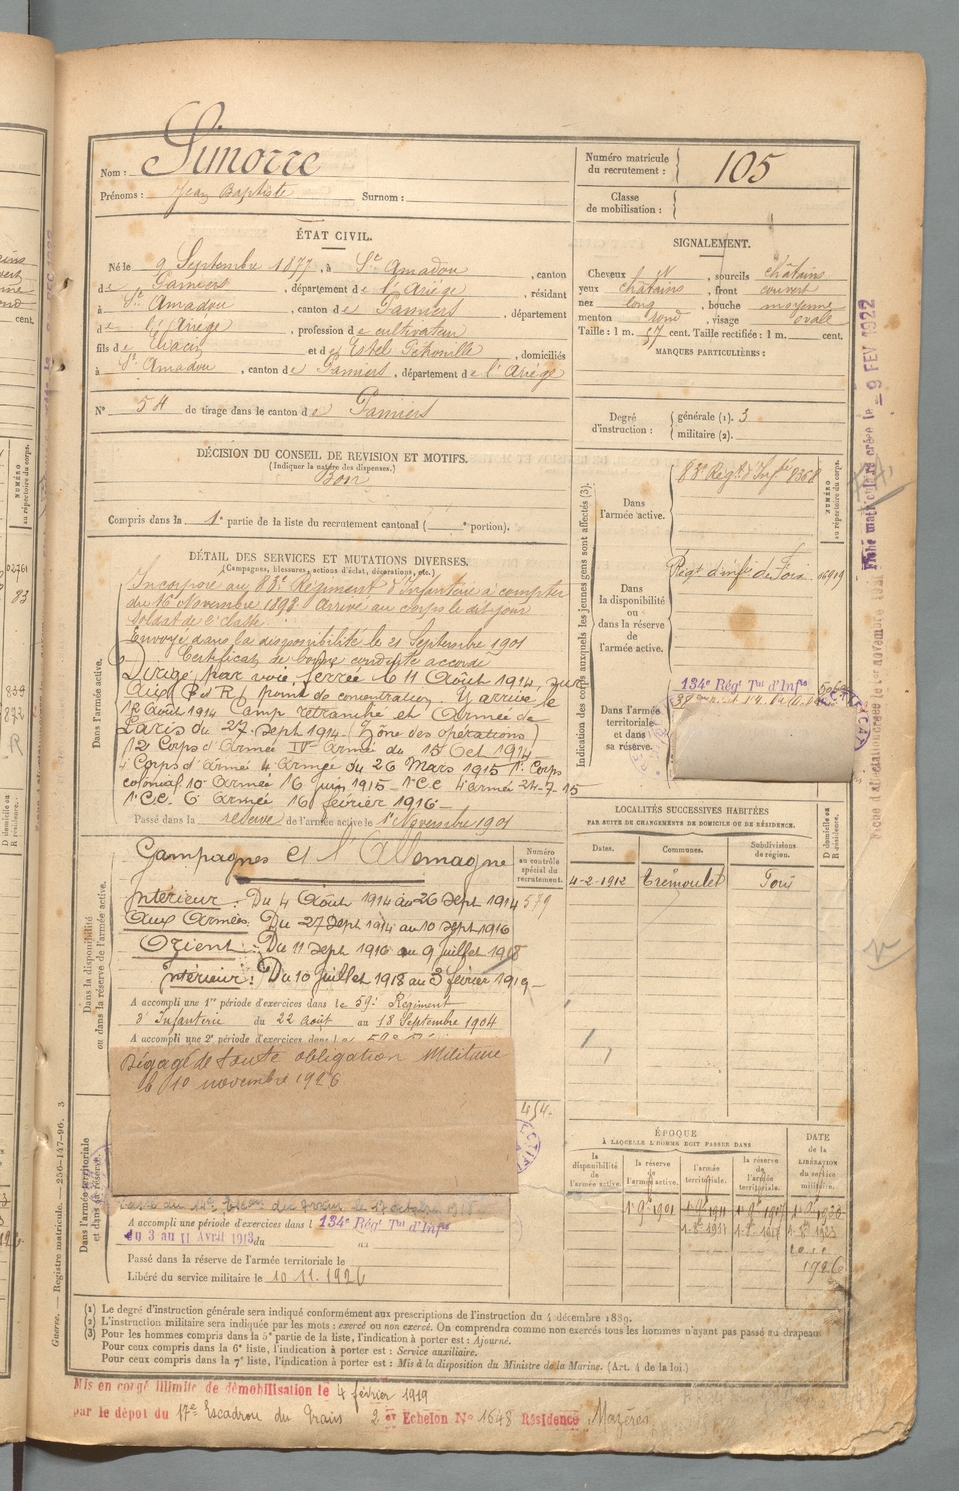 Nom : Simorre
Prénoms : Jean Baptiste Surnom :
Numéro matricule du recrutement : 105
Classe de mobilisation :
ÉTAT CIVIL.
Né le 9 Septembre 1877, à St Amadou, canton
de Pamiers, département de l'Ariège, résidant
à St Amadou, canton de Pamiers, département
de l'Ariège, profession de cultivateur
fils de et de Estel Pétronille, domiciliés
à St Amadou, canton de Pamiers, département de l'Ariège
N° 54 de tirage dans le canton de Pamiers
SIGNALEMENT.
Cheveux N, sourcils châtains
yeux châtains, front couvert
nez long, bouche moyenne
menton rond, visage ovale
Taille : 1 m. 57 cent. Taille rectifiée : 1 m. cent.
MARQUES PARTICULIÈRES :
Degré d'instruction : générale (1). 3
militaire (2).
DÉCISION DU CONSEIL DE REVISION ET MOTIFS.
(Indiquer la nature des dispenses.)
Bon
Compris dans la 1e partie de la liste du recrutement cantonal ( e portion).
DÉTAIL DES SERVICES ET MUTATIONS DIVERSES.
(Campagnes, blessures, actions d'éclat, décorations, etc.)
Dans l'armée active.
Incorporé au 83e Régiment d'Infanterie à compter
du 16 Novembre 1898 Arrivé au corps le dit jour
Soldat de 2e classe
Envoyé dans la disponibilité le 21 Septembre 1901
Certificat de bonne conduite accordé
Dirigé par voie ferrée le 11 Août 1914, sur
point de concentration. Y arrive le
12 Août 1914 Camp retranché et Armée de
Paris du 27 Sept 1914 (Zône des opérations)
12 Corps d'Armée IVe Armée du 15 Oct 1914
Corps d'Armée 4 Armée du 26 Mars 1915 1er Corps
colonial 10 armée 16 juin 1915 1er C.C. 4e armée 24-7-15
1er C.C. 6 armée 16 février 1916
Passé dans la réserve de l'armée active le 1er Novembre 1901
Indication des corps auxquels les jeunes gens sont affectés (3).
NUMÉRO au répertoire du corps.
Dans l'armée active.
83e Régt d'Infie 8368
Dans la disponibilité ou dans la réserve de l'armée active.
Régt d'infie de Foix
Dans l'armée territoriale et dans sa réserve.
134e Régt Tal d'Infie
LOCALITÉS SUCCESSIVES HABITÉES
PAR SUITE DE CHANGEMENTS DE DOMICILE OU DE RÉSIDENCE.
D domicile ou R résidence.
Dates. Communes. Subdivisions de région.
4-2-1912 Trémoulet Foix
Dans la disponibilité ou dans la réserve de l'armée active.
Campagnes et l'Allemagne
Numéro au contrôle spécial du recrutement.
579
Intérieur : Du 4 Août 1914 au 26 Sept 1914
Aux Armées : Du 27 Sept 1914 au 10 Sept 1916
Orient : Du 11 Sept 1916 au 9 juillet 1918
Intérieur : Du 10 Juillet 1918 au 3 février 1919
A accompli une 1re période d'exercices dans le 59e Régiment
d'Infanterie du 22 Août au 18 Septembre 1904
A accompli une 2e période d'exercices dans le 59e
Dégagé de toute obligation Militaire
le 10 novembre 1926
Dans l'armée territoriale et dans sa réserve.
A accompli une période d'exercices dans l 134e Régt Tal d'Infie
du 3 au 11 Avril 1913 du au
Passé dans la réserve de l'armée territoriale le
Libéré du service militaire le 10.11.1926
ÉPOQUE
À LAQUELLE L'HOMME DOIT PASSER DANS
la disponibilité de l'armée active.
la réserve de l'armée active.
l'armée territoriale.
la réserve de l'armée territoriale.
DATE de la LIBÉRATION du service militaire.
1926
(1) Le degré d'instruction générale sera indiqué conformément aux prescriptions de l'instruction du 4 décembre 1889.
(2) L'instruction militaire sera indiquée par les mots : exercé ou non exercé. On comprendra comme non exercés tous les hommes n'ayant pas passé au drapeau
(3) Pour les hommes compris dans la 5e partie de la liste, l'indication à porter est : Ajourné.
Pour ceux compris dans la 6e liste, l'indication à porter est : Service auxiliaire.
Pour ceux compris dans la 7e liste, l'indication à porter est : Mis à la disposition du Ministre de la Marine. (Art. 4 de la loi.)
Mis en congé illimité de démobilisation le 4 février 1919
par le dépôt du 17e Escadron du Train 2 er Echelon N° 1648 Résidence Mazères
Guerre. — Registre matricule. — 256-147-96. 3
Fiche matriculaire créée le - 9 FEV 1922